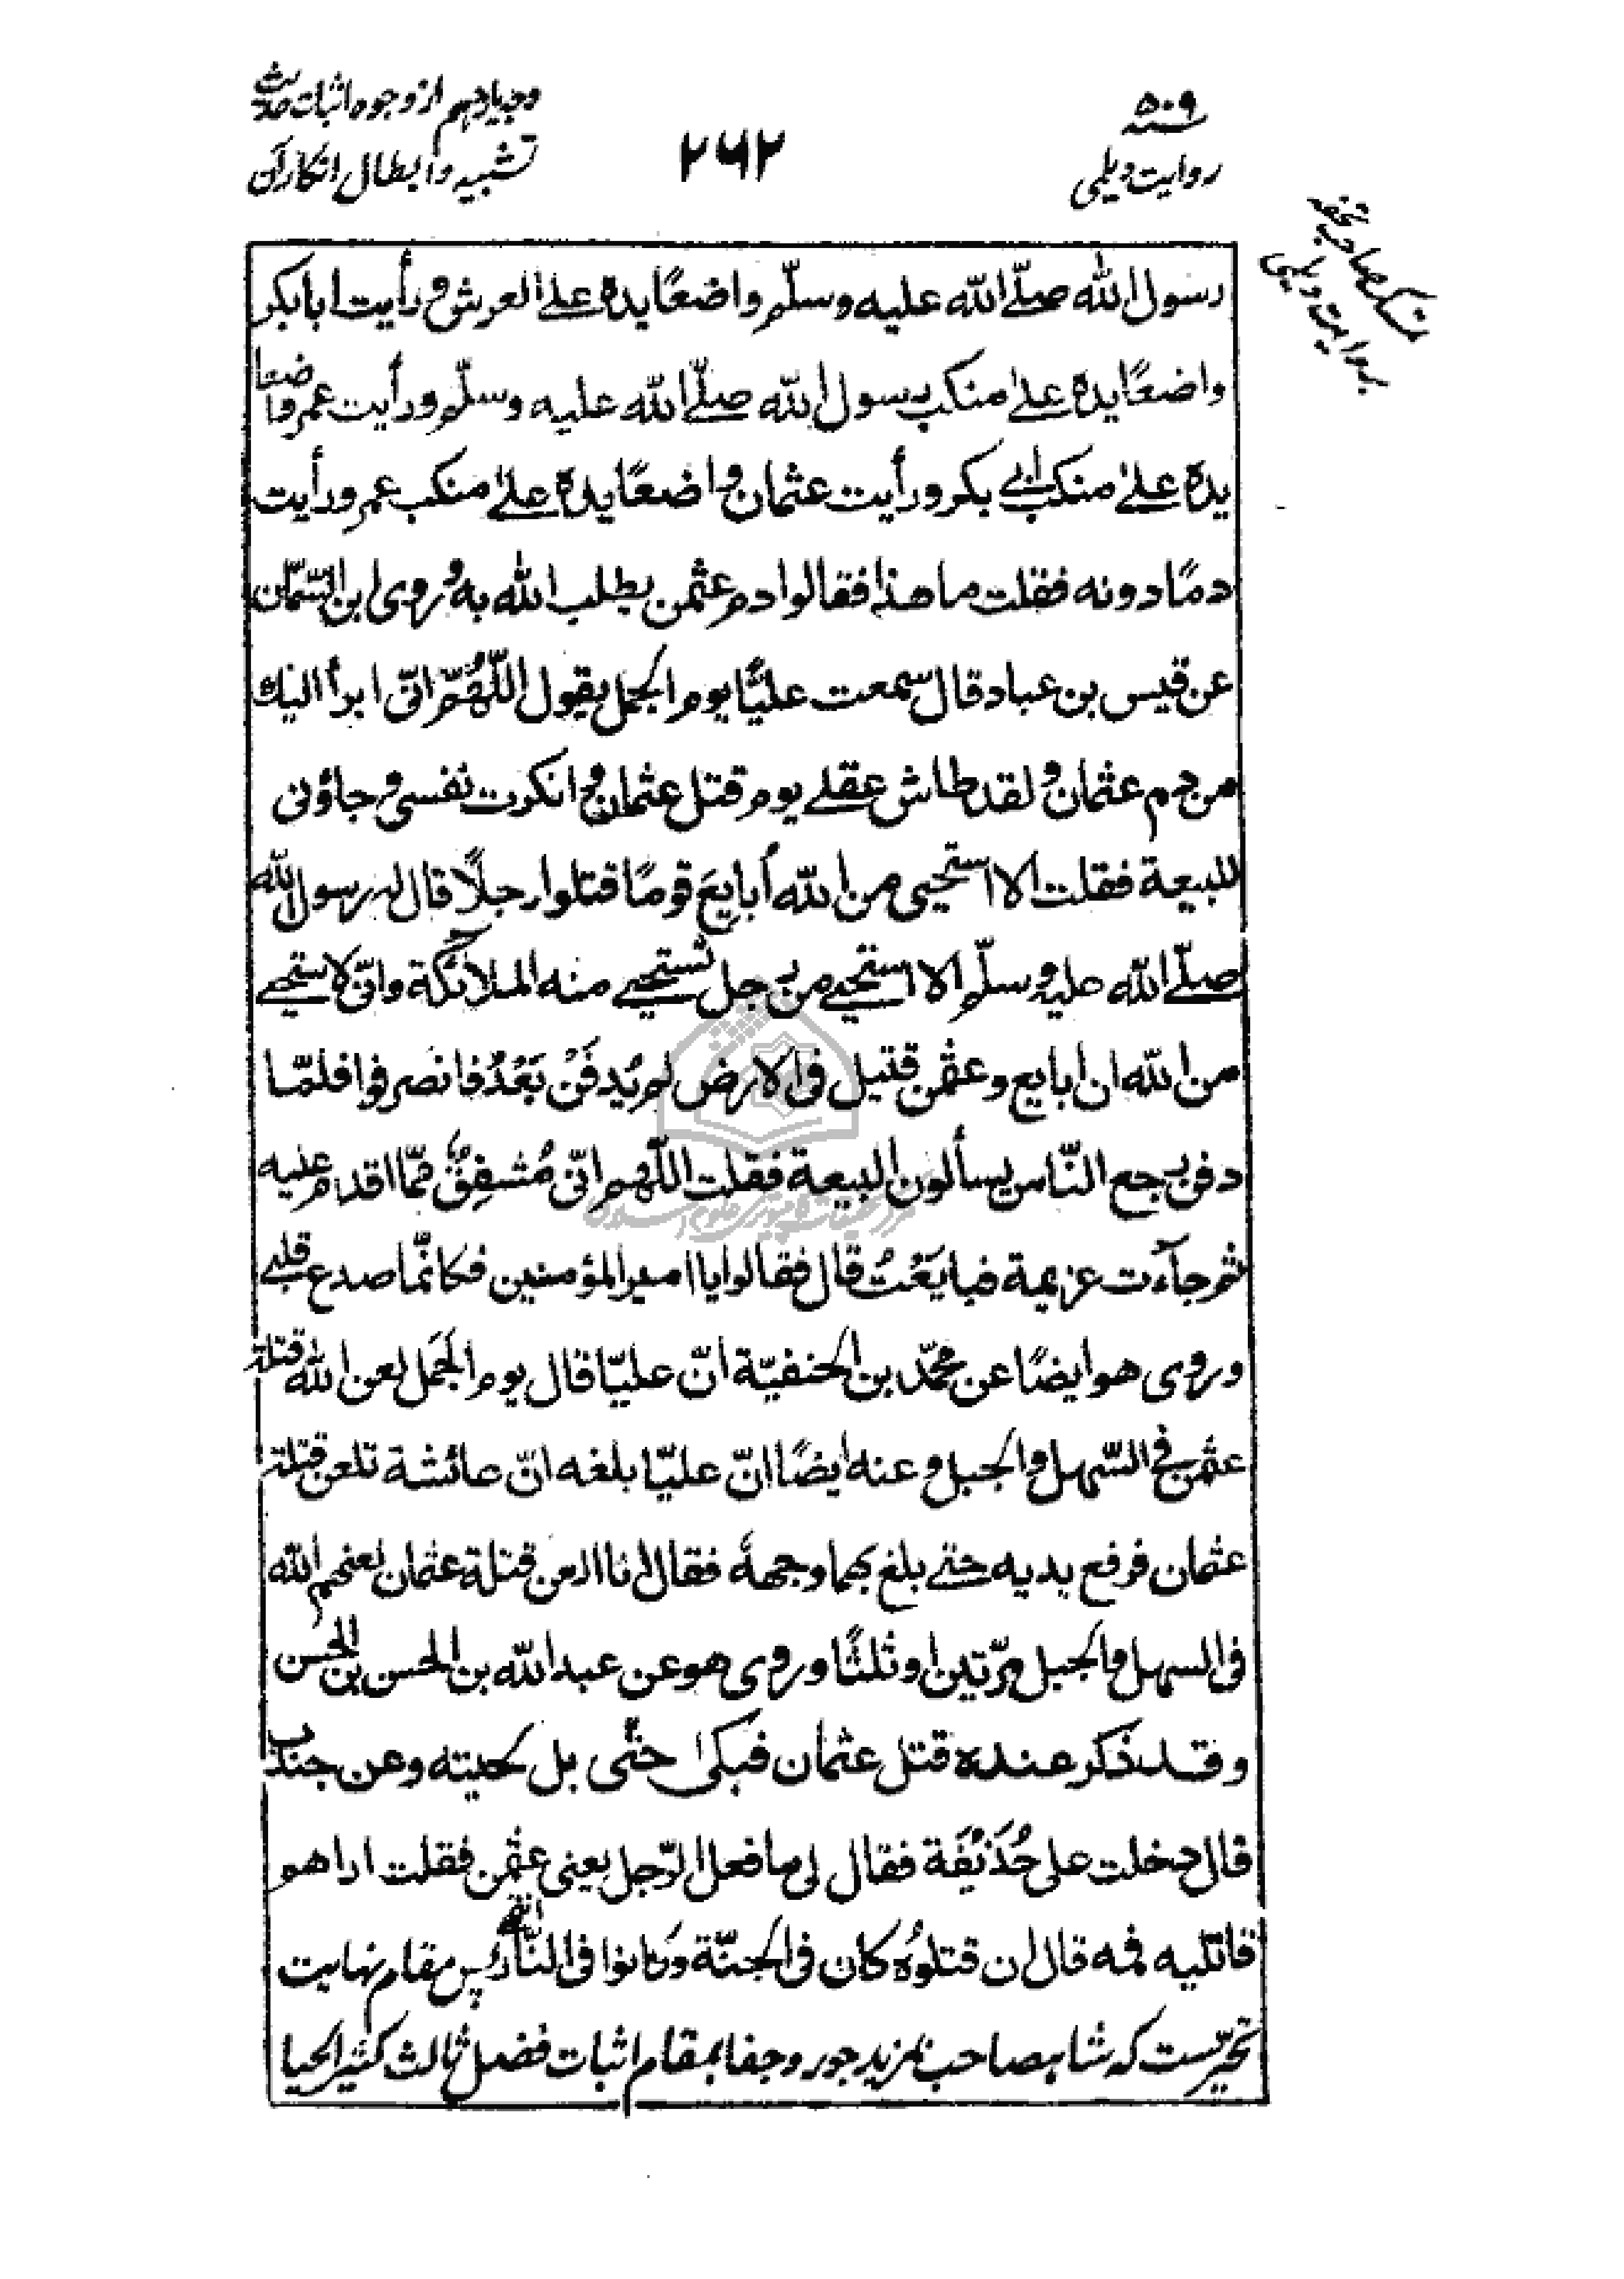 ۵۰۹ سنه
روایت دیلمی
۲۶۲
وجه یازدهم از وجوه اثبات حدیث
تشبیه و ابطال انکار آن
تمسک صاحب تحفه
بروایت دیلمی
رسول الله صلّے الله علیه وسلّم واضعًا یده علے العرش ورأیت ابا بکر
واضعًا یده علےٰ منکب رسول الله صلّے الله علیه وسلّم ورأیت عمر واضعًا
یده علےٰ منکب ابے بکر ورأیت عثمان واضعًا یده علےٰ منکب عمر ورأیت
دمًا دونه فقلت ما هذا فقالوا دم عثمن یطلب الله به وروی ابن السّمّان
عن قیس بن عباد قال سمعت علیًّا یوم الجمل یقول اللّهُمّ انّی ابرأ الیك
من دم عثمان ولقد طاش عقلے یوم قتل عثمان وانکرت نفسی وجاؤنی
للبیعة فقلت الا استحیی من الله أبایعَ قومًا قتلوا رجلًا قال له رسول الله
صلّے الله علیه وسلّم الا استحیے من رجل تستحیے منه الملائکة وانّی لاستحیے
من الله ان ابایع وعثمٰن قتیل فی الارض لم یُدفَن بَعْدُ فانصرفوا فلمّا
دفن رجع النّاس یسألون البیعة فقلت اللّهم انّی مُشفِقٌ ممّا اقدم علیه
ثم جآءت عزیمة فبایَعْتُ قال فقالوا یا امیر المؤمنین فکانّما صدع قلبے
وروی هو ایضًا عن محمّد بن الحنفیّة انّ علیّا قال یوم الجَمَل لعن الله قتلة
عثمٰن فے السّهل والجبل وعنه ایضًا انّ علیّا بلغه انّ عائشة تلعن قتلة
عثمان فرفع یدیه حتے بلغ بهما وجههٗ فقال انا العن قتلة عثمان لعنهم الله
فی السهل والجبل مرّتین او ثلثًا وروی هو عن عبد الله بن الحسن بن الحسن
وقد ذکر عنده قتل عثمان فبکیٰ حتّی بل لحیته وعن جندب
قال دخلت علی حُذَیْفَة فقال لی ما فعل الرّجل یعنی عثمٰن فقلت اراهو
قاتلیه فمه قال ان قتلوُه کان فی الجنّة وکانوا فی النّار انتهے پس مقام نهایت
تحیّرست که شاهصاحب بمزید جور و جفا بمقام اثبات فضل ثالث کثیر الحیا